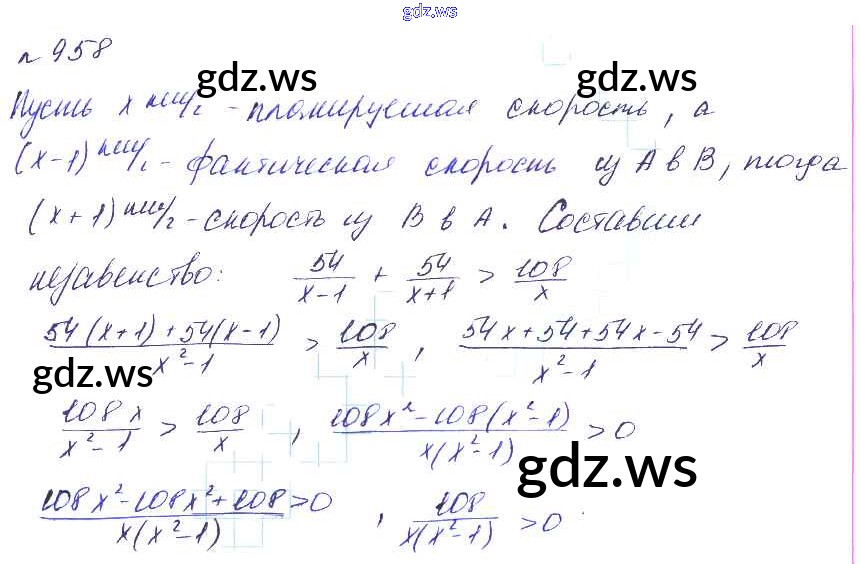 gdz.ws
№ 958
gdz.ws gdz.ws
Пусть x км/г - планируемая скорость, а
(x-1) км/г - фактическая скорость из А в В, тогда
(x+1) км/г - скорость из В в А. Составим
неравенство: 54/(x-1) + 54/(x+1) > 108/x
(54(x+1)+54(x-1))/(x²-1) > 108/x , (54x+54+54x-54)/(x²-1) > 108/x
gdz.ws
108x/(x²-1) > 108/x , (108x²-108(x²-1))/(x(x²-1)) > 0
gdz.ws
(108x²-108x²+108)/(x(x²-1)) > 0 , 108/(x(x²-1)) > 0